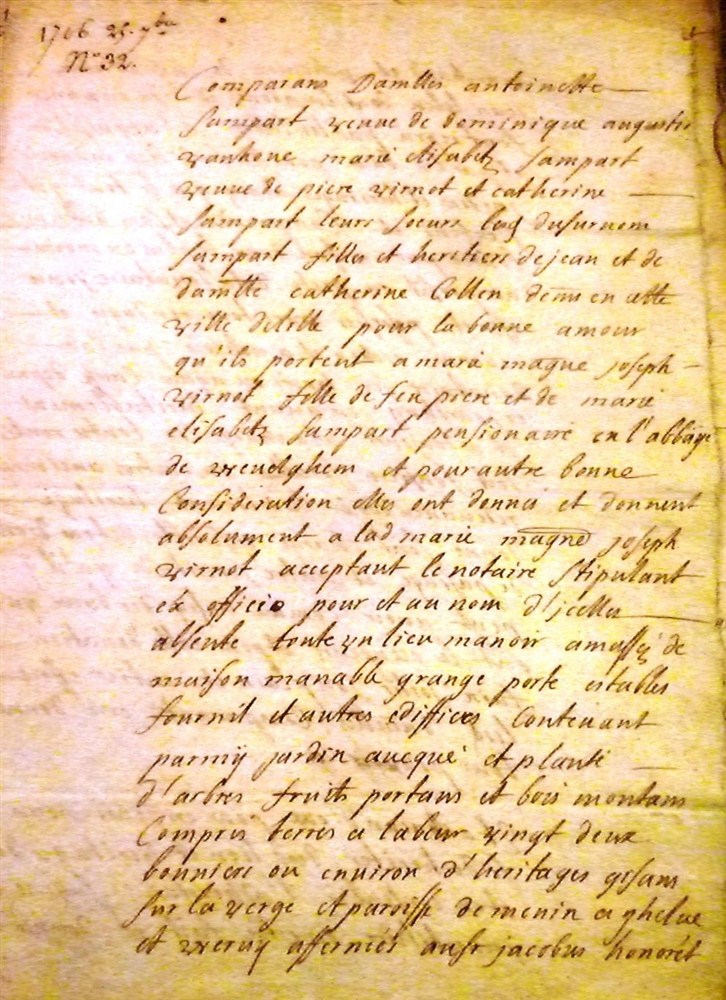 1706 25. 7bre
No 32.
Comparans Damlles antoinette
Sampart veuve de dominique augustin
vanhoue marie elisabetz Sampart
veuve de piere virnot et catherine
Sampart leurs soeurs dusurnom
Sampart filles et heretiers de jean et de
damlle catherine Collen dem en cette
ville delille pour la bonne amour
qu'ils portent a marie magne joseph
virnot fille de feu piere et de marie
elisabetz Sampart pensionaire en l'abbaÿe
de wevelghem et pour autre bonne
Consideration elles ont donnés et donnent
absolument a lad marie magne joseph
virnot acceptant le notaire stipulant
ex officio pour et au nom d'jcelles
absente toute yn lieu manoir amassÿ de
maison manable grange porte estables
fournil et autres ediffices Contenant
parmÿ jardin aucque et planté
d'arbres fruits portans et bois montans
Compris terres a labeur vingt deux
bonniere ou environ d'heritages gisans
sur la verge et paroisse de menin a ghelue
et wervicq affermés jacobus honoret